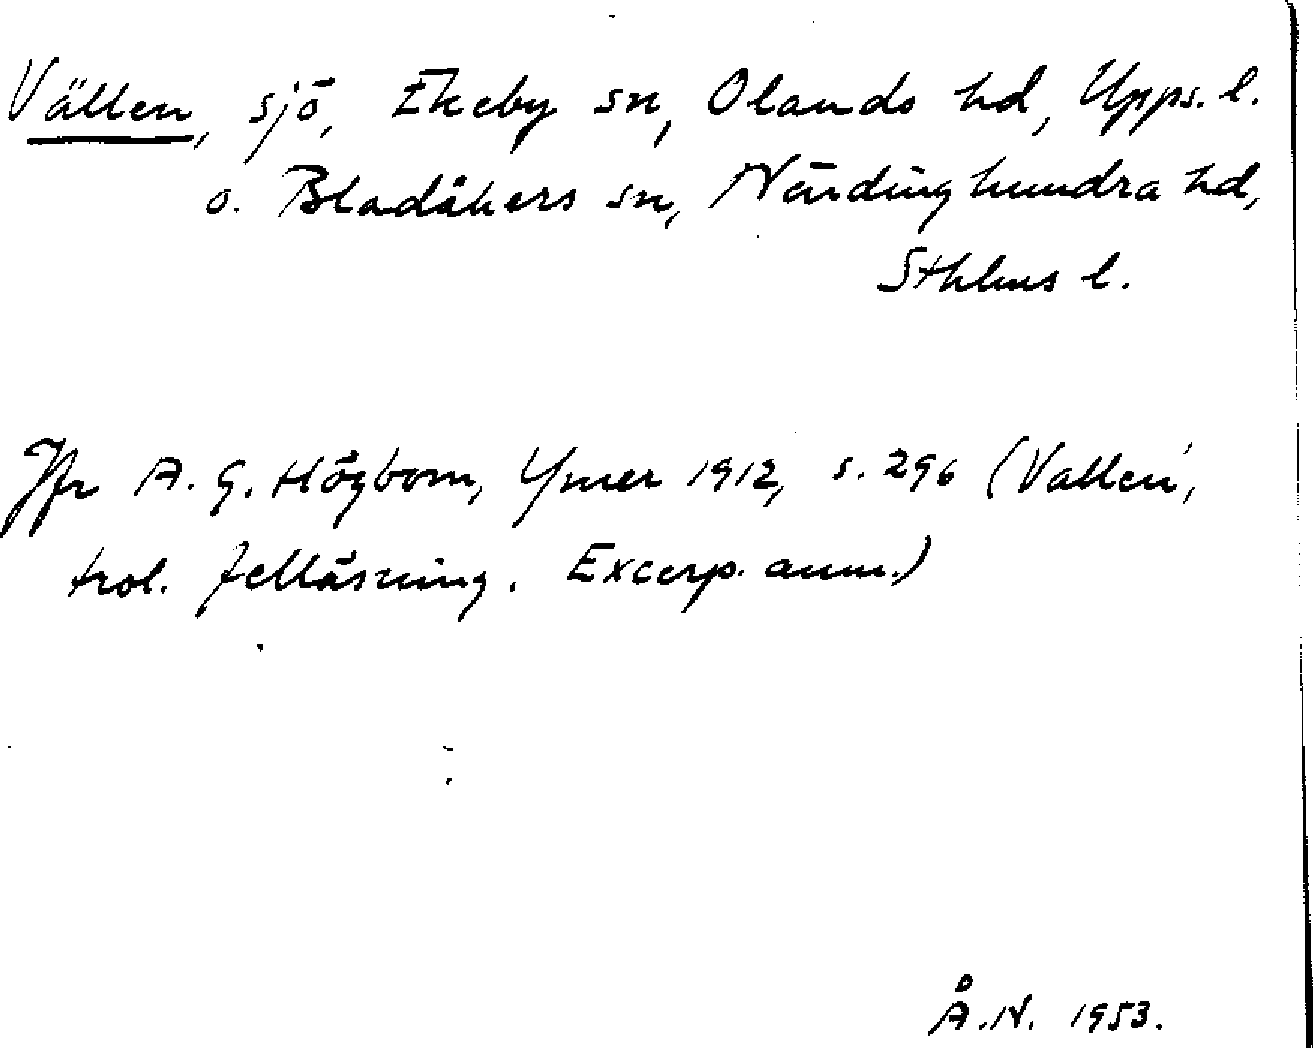 Vällen, sjö, Ekeby sn, Olands hd, Upps. l.
o. Bladåkers sn, Närdinghundra hd,
Sthlms l.
Jfr A. G. Högbom, Ymer 1912, s. 296 (Vallen,
trol. felläsning. Excerp. anm.)
Å.N. 1953.